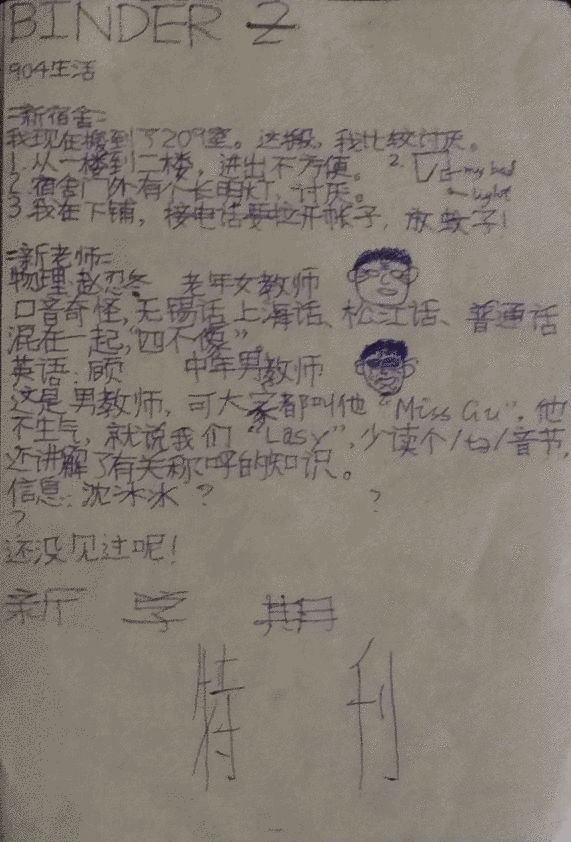 BINDER Z
904生活
=新宿舍=
我现在搬到了209室。这搬，我比较讨厌。
1.从一楼到二楼，进出不方便。 2. my bed
2.宿舍门外有个长明灯，讨厌。 light
3.我在下铺，接电话要拉开帐子，放蚊子！
=新老师=
物理:赵忍冬 老年女教师
口音奇怪，无锡话、上海话、松江话、普通话
混在一起，“四不像”。
英语:顾 中年男教师
这是男教师，可大家都叫他“Miss Gu”，他
不生气，就说我们“Lasy”，少读个/tə/音节，
还讲解了有关称呼的知识。
信息:沈沐冰 ? ?
?
还没见过呢！
新 学 期
特 刊